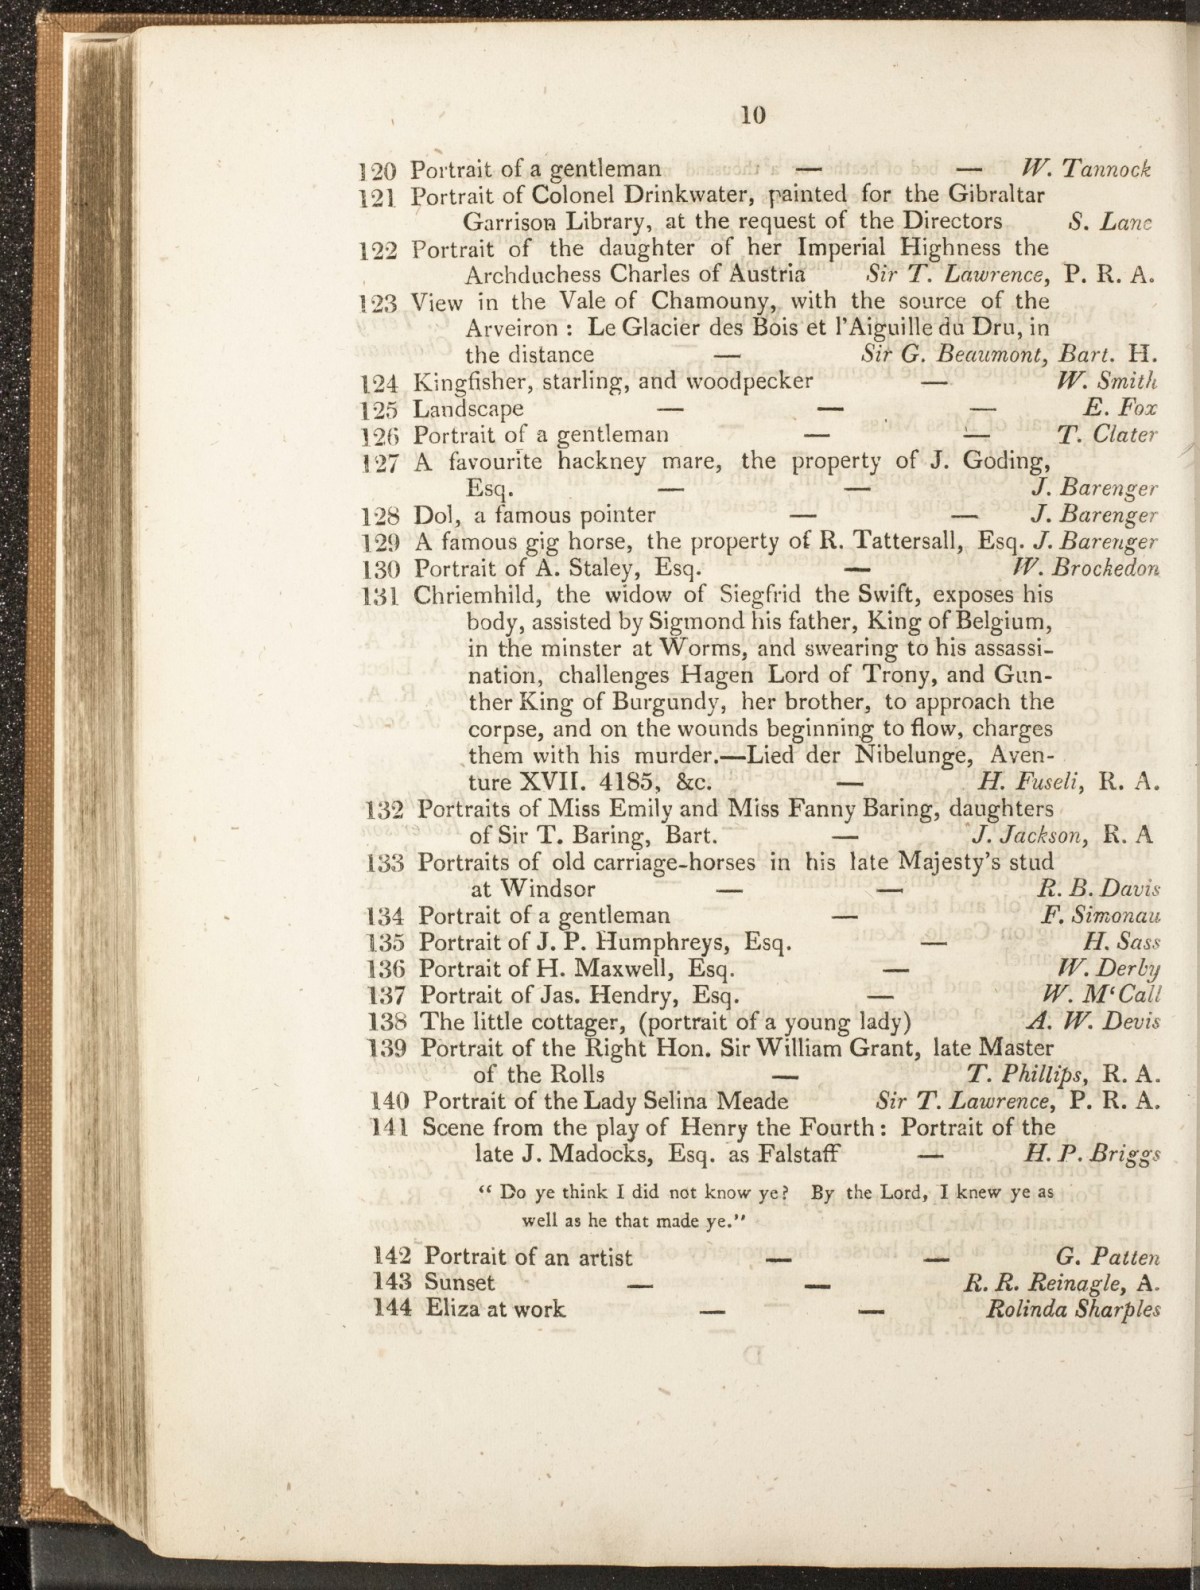 10
120 Portrait of a gentleman — — W. Tannock
121 Portrait of Colonel Drinkwater, painted for the Gibraltar
Garrison Library, at the request of the Directors S. Lane
122 Portrait of the daughter of her Imperial Highness the
Archduchess Charles of Austria Sir T. Lawrence, P. R. A.
123 View in the Vale of Chamouny, with the source of the
Arveiron : Le Glacier des Bois et l'Aiguille du Dru, in
the distance — Sir G. Beaumont, Bart. H.
124 Kingfisher, starling, and woodpecker — W. Smith
125 Landscape — — — E. Fox
126 Portrait of a gentleman — — T. Clater
127 A favourite hackney mare, the property of J. Goding,
Esq. — — J. Barenger
128 Dol, a famous pointer — — J. Barenger
129 A famous gig horse, the property of R. Tattersall, Esq. J. Barenger
130 Portrait of A. Staley, Esq. — W. Brockedon
131 Chriemhild, the widow of Siegfrid the Swift, exposes his
body, assisted by Sigmond his father, King of Belgium,
in the minster at Worms, and swearing to his assassi-
nation, challenges Hagen Lord of Trony, and Gun-
ther King of Burgundy, her brother, to approach the
corpse, and on the wounds beginning to flow, charges
them with his murder.—Lied der Nibelunge, Aven-
ture XVII. 4185, &c. — H. Fuseli, R. A.
132 Portraits of Miss Emily and Miss Fanny Baring, daughters
of Sir T. Baring, Bart. — J. Jackson, R. A
133 Portraits of old carriage-horses in his late Majesty's stud
at Windsor — — R. B. Davis
134 Portrait of a gentleman — F. Simonau
135 Portrait of J. P. Humphreys, Esq. — H. Sass
136 Portrait of H. Maxwell, Esq. — W. Derby
137 Portrait of Jas. Hendry, Esq. — W. M‘Call
138 The little cottager, (portrait of a young lady) A. W. Devis
139 Portrait of the Right Hon. Sir William Grant, late Master
of the Rolls — T. Phillips, R. A.
140 Portrait of the Lady Selina Meade Sir T. Lawrence, P. R. A.
141 Scene from the play of Henry the Fourth : Portrait of the
late J. Madocks, Esq. as Falstaff — H. P. Briggs
“ Do ye think I did not know ye? By the Lord, I knew ye as
well as he that made ye.”
142 Portrait of an artist — — G. Patten
143 Sunset — — R. R. Reinagle, A.
144 Eliza at work — — Rolinda Sharples